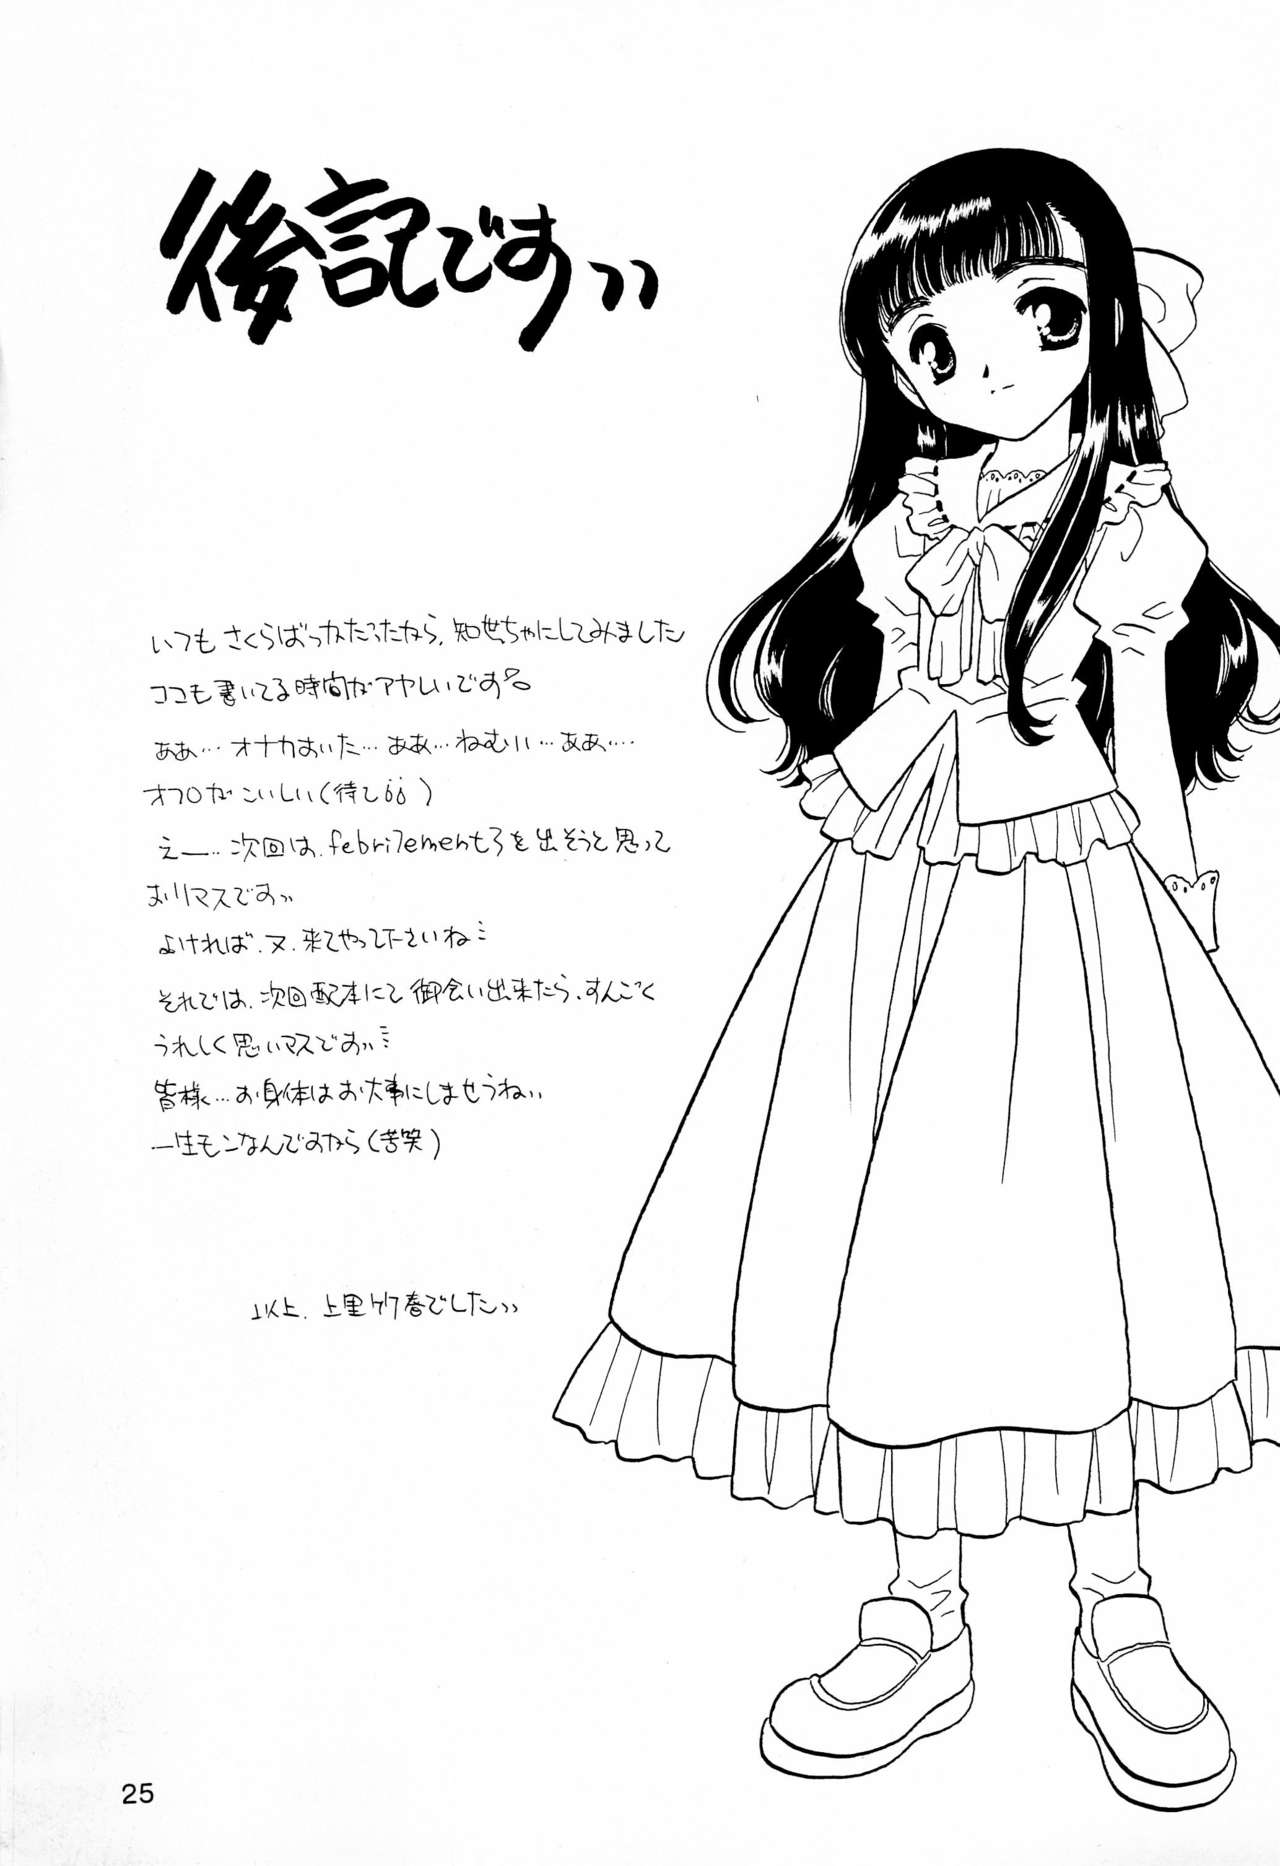 後記ですッッ
いつもさくらばっかだったから、知世ちゃにしてみました
ココも書いてる時間がアヤしいです。
ああ…オナカおいた…ああ…ねむい…ああ…
オフロがこいしい(待て¡¡)
えー…次回は、febrilement3を出そうと思って
おりマスですッッ
よければ、又、来てやって下さいね
それでは、次回配本にて御会い出来たら、すんごく
うれしく思いマスですッッ
皆様…お身体はお大事にしませうねッッ
一生モンなんですから(苦笑)
以上、上里竹春でしたッッ
25